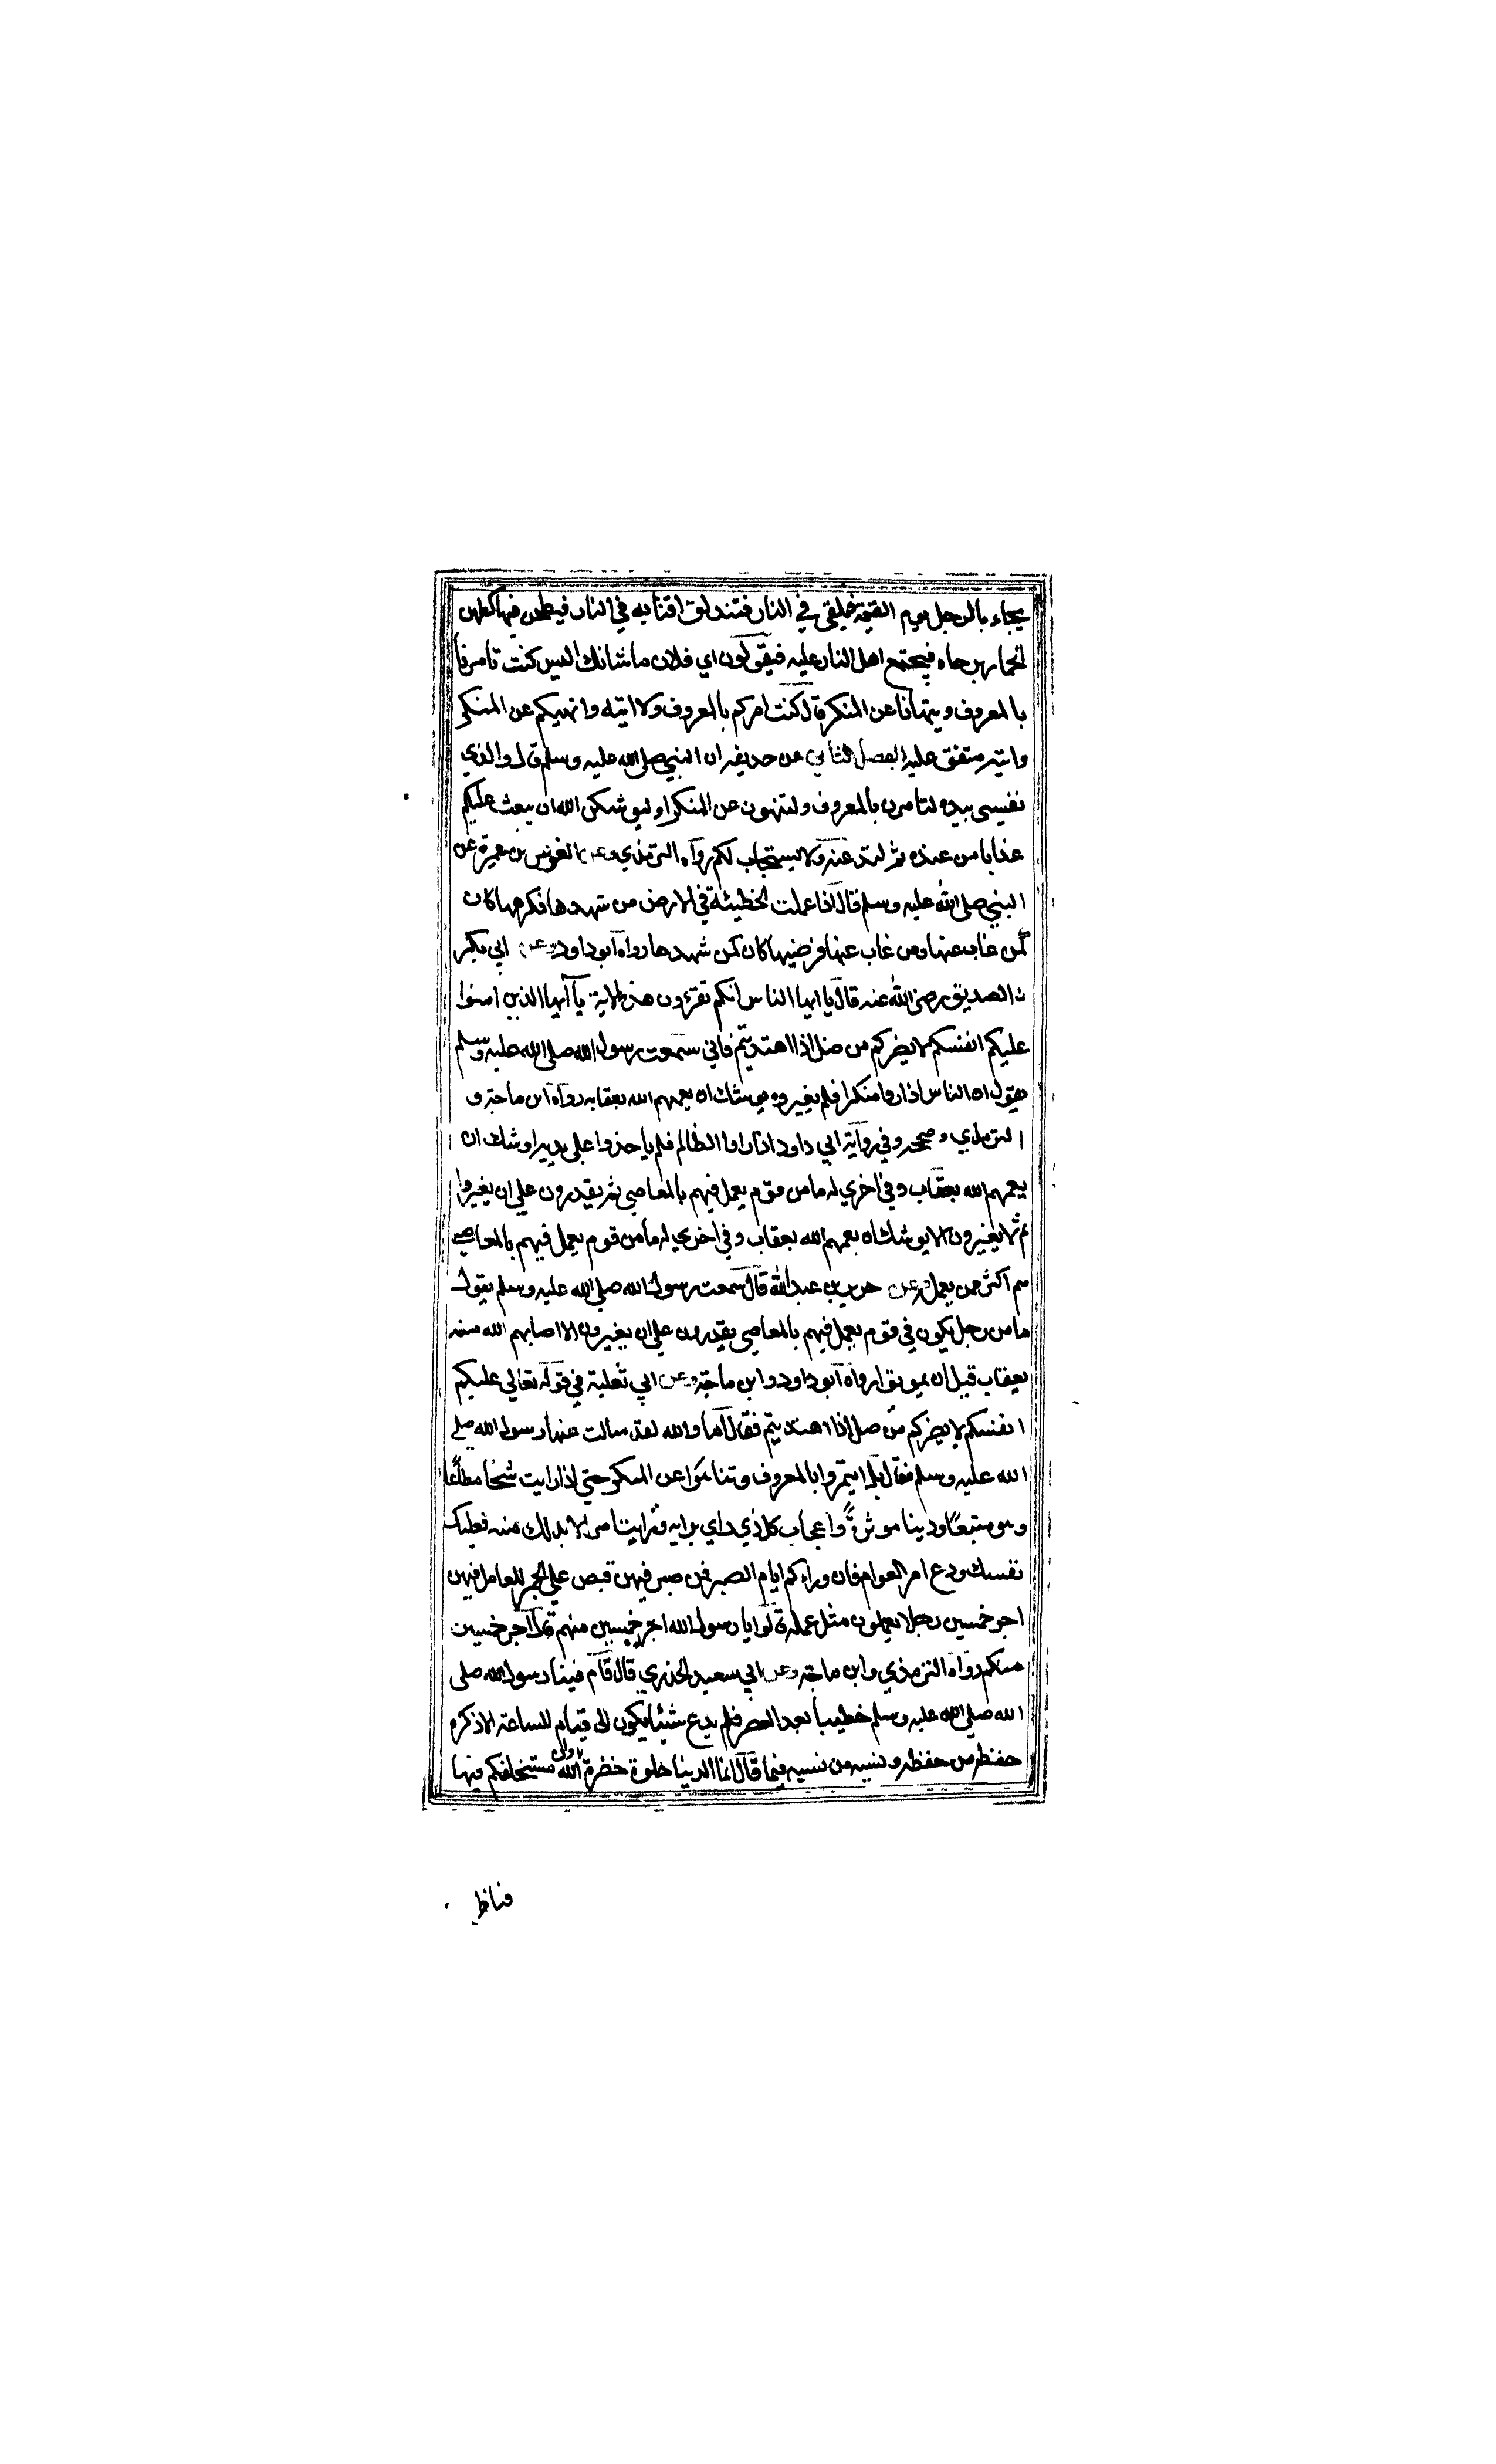 يجاء بالرجل يوم القيمة فيلقى في النار فتندلق اقتابه في النار فيطحن فيها كطحن
الحمار برحاه فيجتمع اهل النار عليه فيقولون اي فلان ما شانك اليس كنت تامرنا
بالمعروف وينهانا عن المنكر قال كنت امركم بالمعروف ولا اتيه وانهيكم عن المنكر
واتيه متفق عليه الفصل الثاني عن حذيفه ان النبي صلى الله عليه وسلم قال والذي
نفسي بيده لتامرن بالمعروف ولتنهون عن المنكر او ليوشكن الله ان يبعث عليكم
عذابا من عنده ثم لتدعنه ولا يستجاب لكم رواه الترمذي وعن العرس بن عميرة عن
النبي صلى الله عليه وسلم قال اذا عملت الخطيئة في الارض من شهدها فكرهها كان
كمن غاب عنها ومن غاب عنها فرضيها كان كمن شهدها رواه ابو داود وعن ابي بكر
ن الصديق رضي الله عنه قال يا ايها الناس انكم تقرءون هذه الاية يا ايها الذين امنوا
عليكم انفسكم لا يضركم من ضل اذا اهتديتم فاني سمعت رسول الله صلى الله عليه وسلم
يقول ان الناس اذا راوا منكرا فلم يغيروه يوشك ان يعمهم الله بعقابه رواه ابن ماجة و
الترمذي وصححه وفي رواية ابي داود اذا راوا الظالم فلم ياخذوا على يديه اوشك ان
يعمهم الله بعقاب وفي اخري له ما من قوم يعمل فيهم بالمعاصي ثم يقدرون علي ان يغيروا
ثم لا يغيرون الا يوشك ان يعمهم الله بعقاب وفي اخري له ما من قوم يعمل فيهم بالمعاصي
هم اكثر ممن يعمل وعن جرير بن عبد الله قال سمعت رسول الله صلي الله عليه وسلم يقول
ما من رجل يكون في قوم يعمل فيهم بالمعاصي يقدرون علي ان يغيرون الا اصابهم الله منه
بعقاب قبل ان يموتوا رواه ابو داود وابن ماجة وعن ابي ثعلبة في قوله تعالي عليكم
انفسكم لا يضركم من ضل اذا اهتديتم فقال اما والله لقد سالت عنها رسول الله صلي
الله عليه وسلم فقال بل ايتمروا بالمعروف وتناهوا عن المنكر حتي اذا رايت شحا مطاعا
وهو متبعا ودينا موثرة واعجاب كل ذي راي برايه ورايت امر لا بد لك منه فعليك
نفسك ودع امر العوام فان وراءكم ايام الصبر فمن صبر فيهن قبض علي الجمر للعامل فيهن
اجر خمسين رجلا يعملون مثل عمله قالوا يا رسول الله اجر خمسين منهم قال اجر خمسين
منكم رواه الترمذي وابن ماجة وعن ابي سعيد الخدري قال قام فينا رسول الله صلى
الله صلى الله عليه وسلم خطيبا بعد العصر فلم يدع شيئا يكون الى قيام الساعة الا ذكره
حفظه من حفظه ونسيه من نسيه فيما قال انما الدنيا حلوة خضرة وان الله مستخلفكم فيها
فناظر